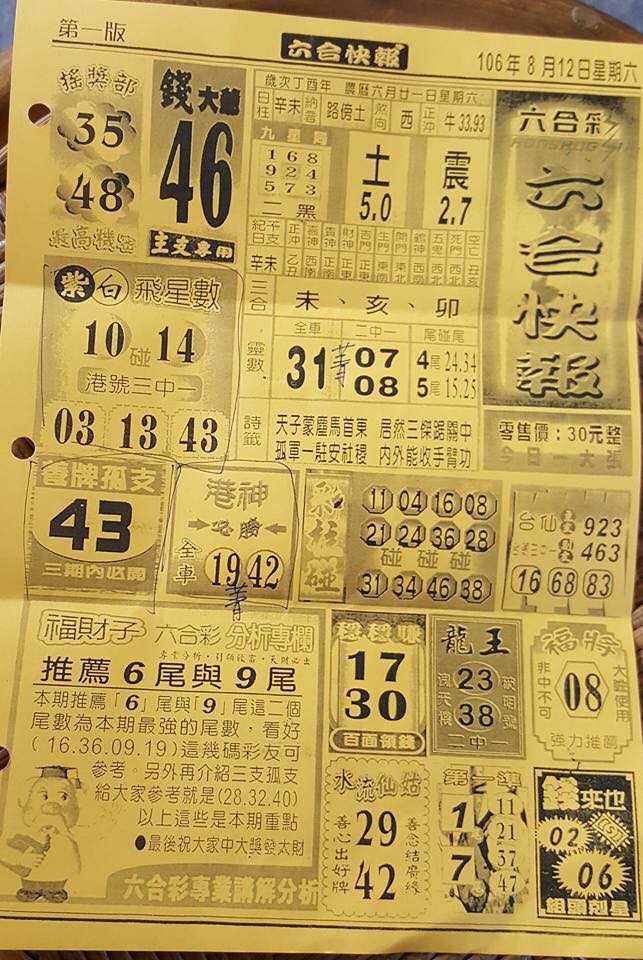 第一版
六合快報
106年8月12日星期六
搖獎部
35
48
最高機密
錢大師
46
主支專用
歲次丁酉年 農曆六月廿一日星期六
日柱 辛未 納音 路傍土 煞向 西 正沖 牛33.93
九星局
1 6 8
9 2 4
5 7 3
二黑
土
5.0
震
2.7
六合彩
六合快報
零售價：30元整
今日一大張
紀日 干支 正沖 喜神 貴神 財神 吉門 生門 開門 五鬼 死門 空亡
辛未 乙丑
三合 未、亥、卯
靈數
全車 二中一 尾碰尾
31 菁
07
08
4尾 24.34
5尾 15.25
詩籤
天子蒙塵馬首東 居然三傑踞關中
孤軍一駐安社稷 內外能收手臂功
紫白飛星數
10 碰 14
港號三中一
03 13 43
看牌孤支
43
三期內必開
港神
必勝
全車
19 42
菁
彩柱碰
11 04 16 08
21 24 36 28
碰 碰 碰
31 34 46 38
台仙 923
463
16 68 83
福財子 六合彩 分析專欄
專業分析・引領致富・天財必出
推薦 6 尾與 9 尾
本期推薦「6」尾與「9」尾這二個
尾數為本期最強的尾數，看好
(16.36.09.19)這幾碼彩友可
參考。另外再介紹三支孤支
給大家參考就是(28.32.40)
以上這些是本期重點
●最後祝大家中大獎發太財
六合彩專業講解分析
穩穩賺
17
30
百面領錢
龍王
23
38
二中一
福將
非中不可
08
大膽使用
強力推薦
水流仙姑
善心出好牌
29
42
善念結廣緣
第一準
1
7
11
21
37
47
錢來也
02
06
組頭剋星